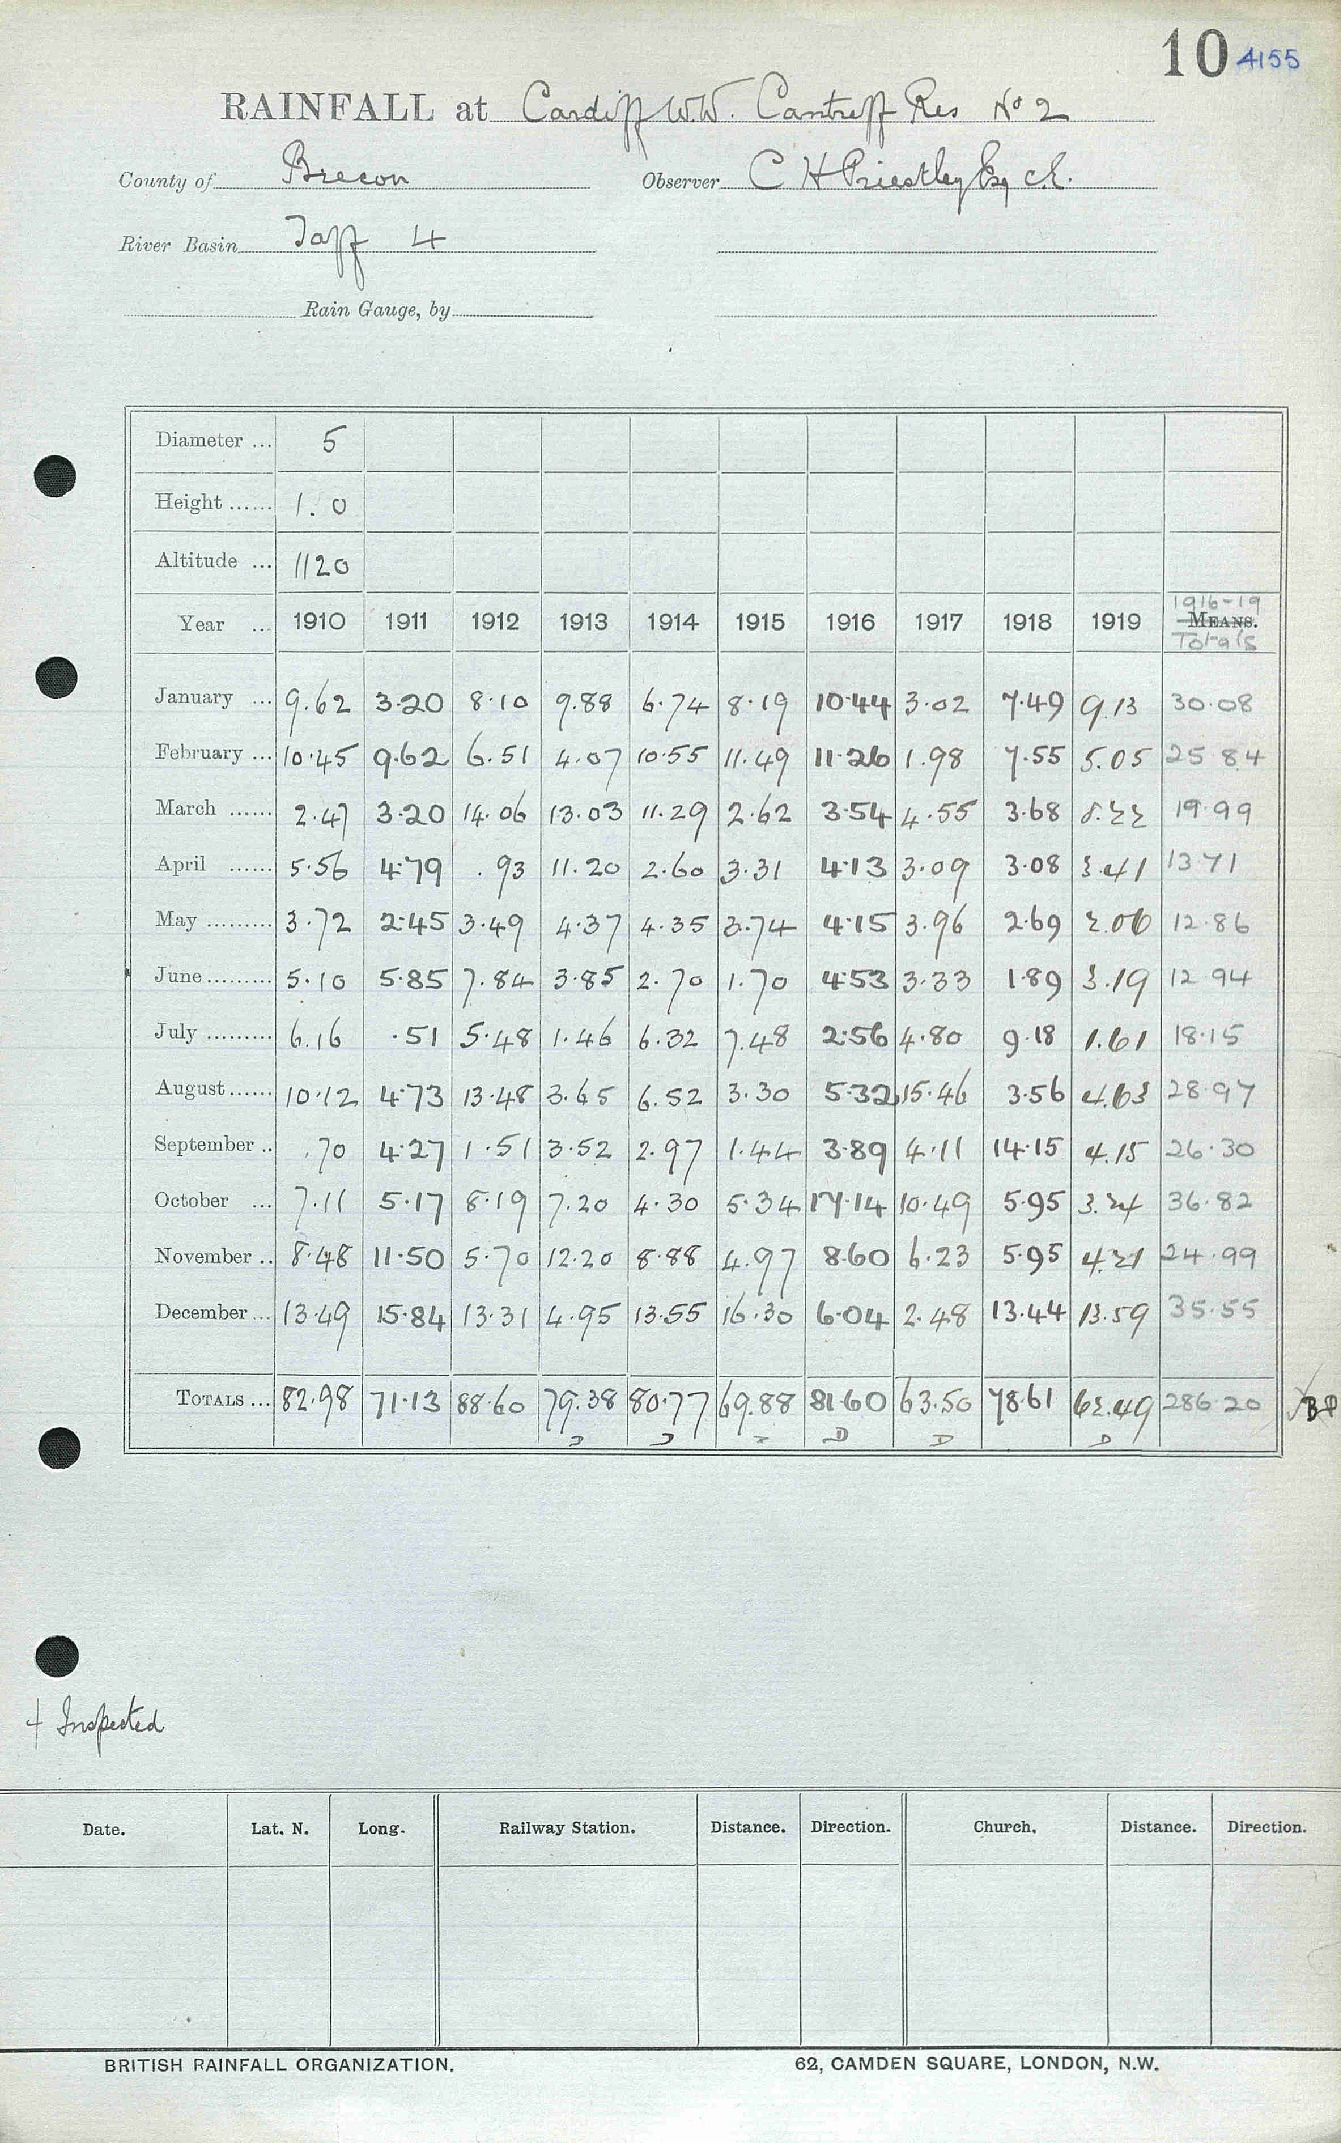 10 4155
RAINFALL at Cardiff W.W. Cantreff Res No 2
County of Brecon Observer C H Priestley Esq C.E.
River Basin Taff 4
Rain Gauge, by
Diameter ... 5
Height ...... 1.0
Altitude ... 1120
Year ... 1910 1911 1912 1913 1914 1915 1916 1917 1918 1919 1916-19 MEANS. Totals
January ... 9.62 3.20 8.10 9.88 6.74 8.19 10.44 3.02 7.49 9.13 30.08
February ... 10.45 9.62 6.51 4.07 10.55 11.49 11.26 1.98 7.55 5.05 25 84
March ...... 2.47 3.20 14.06 13.03 11.29 2.62 3.54 4.55 3.68 8.22 19.99
April ...... 5.56 4.79 .93 11.20 2.60 3.31 4.13 3.09 3.08 3.41 13 71
May ......... 3.72 2.45 3.49 4.37 4.35 3.74 4.15 3.96 2.69 2.06 12.86
June ......... 5.10 5.85 7.84 3.85 2.70 1.70 4.53 3.33 1.89 3.19 12 94
July ......... 6.16 .51 5.48 1.46 6.32 7.48 2.56 4.80 9.18 1.61 18.15
August ...... 10.12 4.73 13.48 3.65 6.52 3.30 5.32 15.46 3.56 4.63 28.97
September .. .70 4.27 1.51 3.52 2.97 1.44 3.89 4.11 14.15 4.15 26.30
October ... 7.11 5.17 8.19 7.20 4.30 5.34 17.14 10.49 5.95 3.24 36.82
November .. 8.48 11.50 5.70 12.20 8.88 4.97 8.60 6.23 5.95 4.21 24.99
December ... 13.49 15.84 13.31 4.95 13.55 16.30 6.04 2.48 13.44 13.59 35.55
TOTALS ... 82.98 71.13 88.60 79.38 80.77 69.88 81.60 63.50 78.61 62.49 286.20
D D D
+ Inspected
Date. Lat. N. Long. Railway Station. Distance. Direction. Church. Distance. Direction.
BRITISH RAINFALL ORGANIZATION. 62, CAMDEN SQUARE, LONDON, N.W.